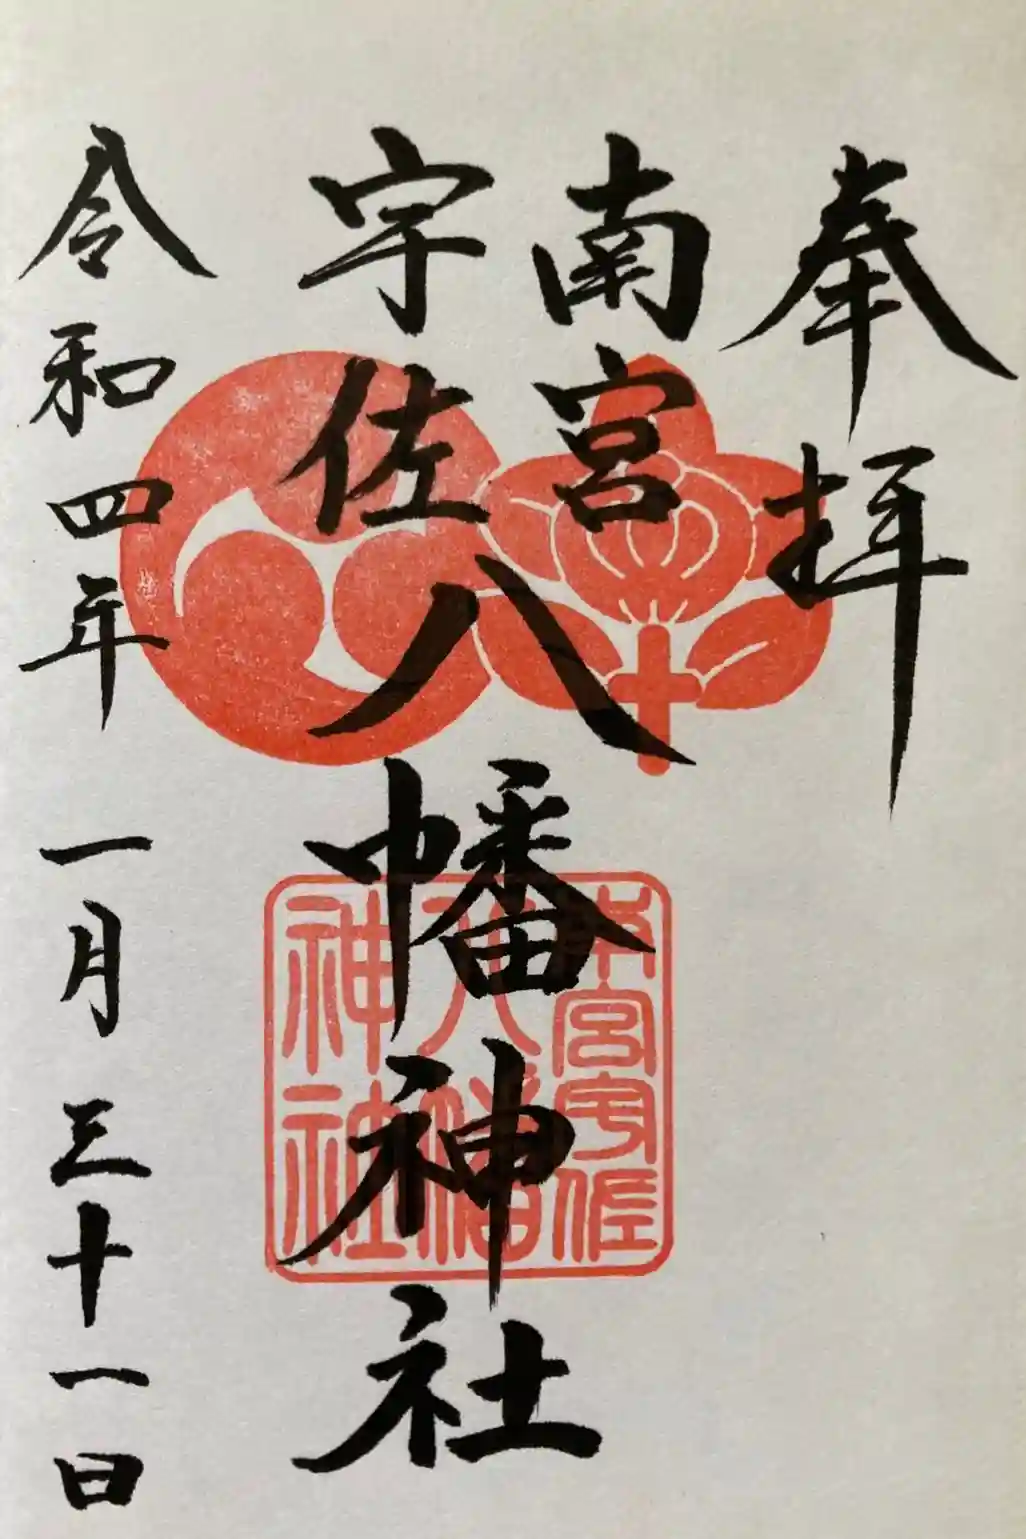 奉拝
南宮
宇佐八幡神社
令和四年一月三十一日
本宮宇佐
八幡
神社